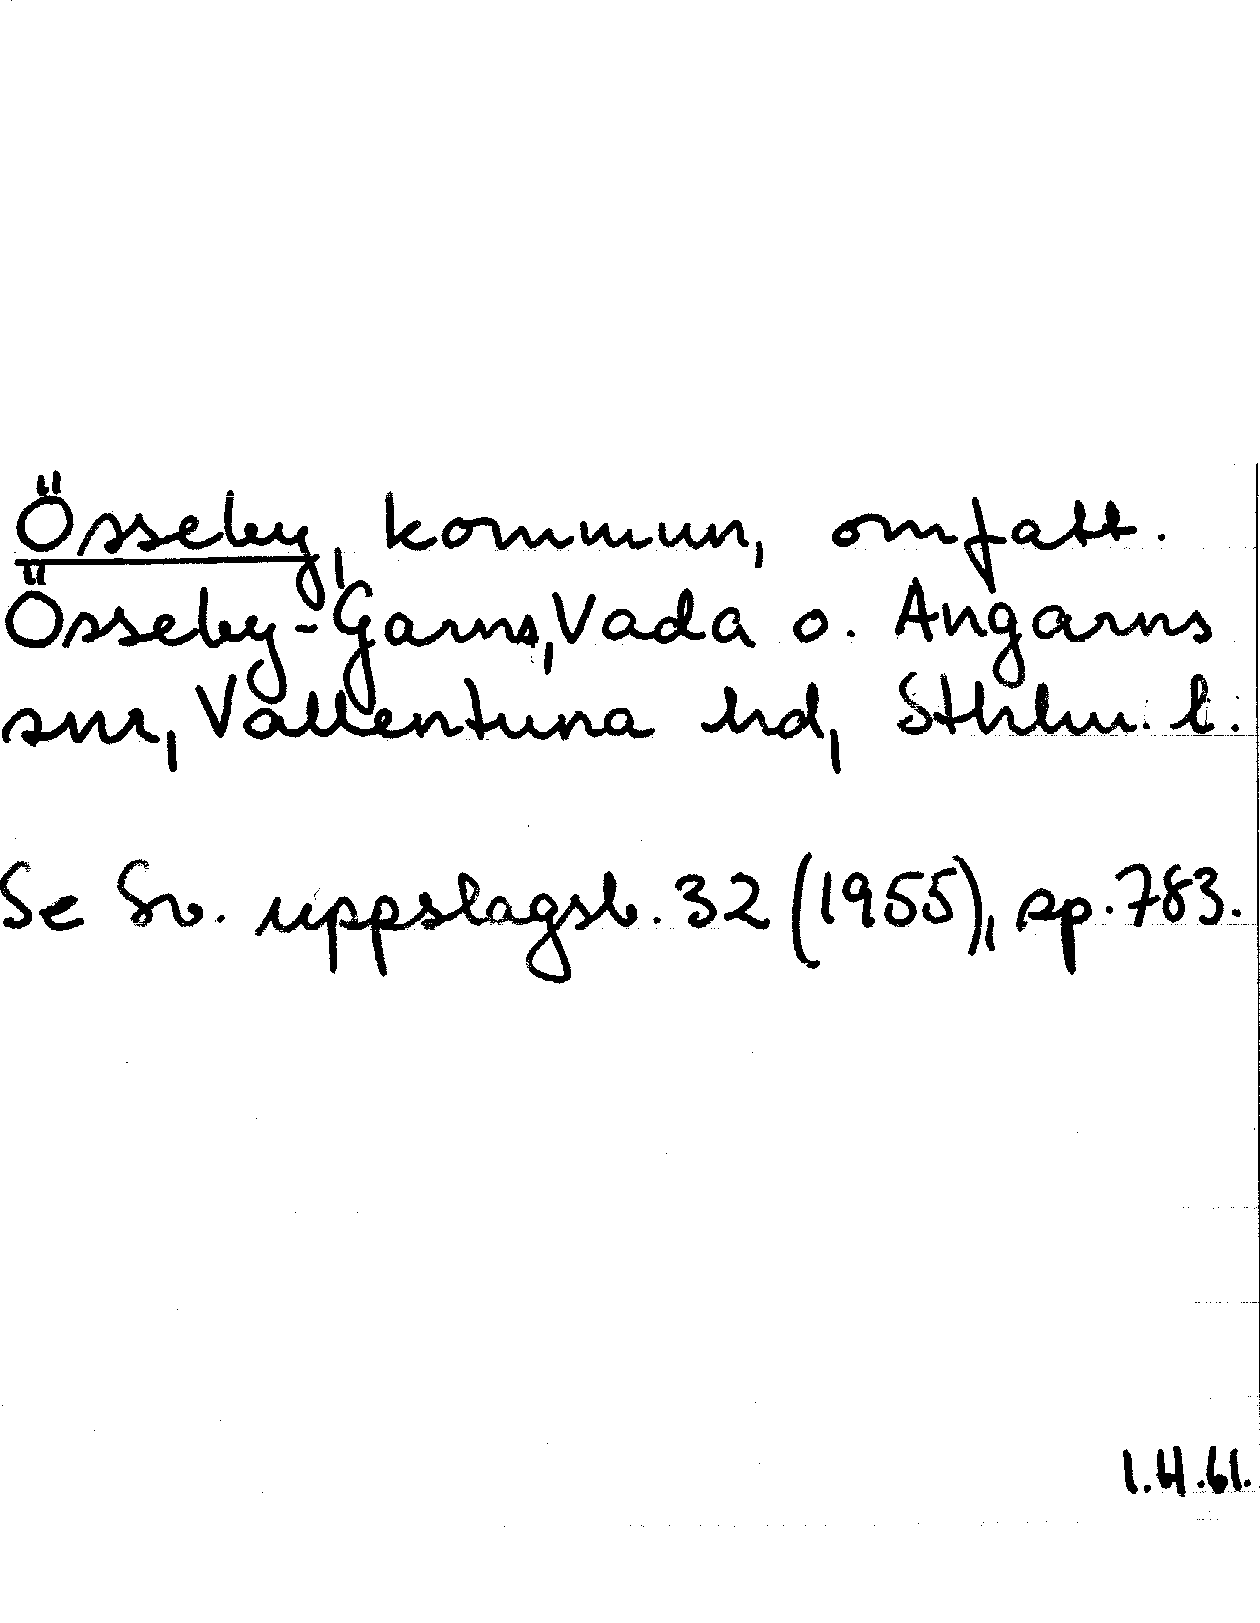 Össeby, kommun, omfatt.
Össeby-Garns, Vada o. Angarns
snr, Vallentuna hd, Sthlm. l.
Se Sv. uppslagsb. 32 (1955), sp. 783.
1.4.61.